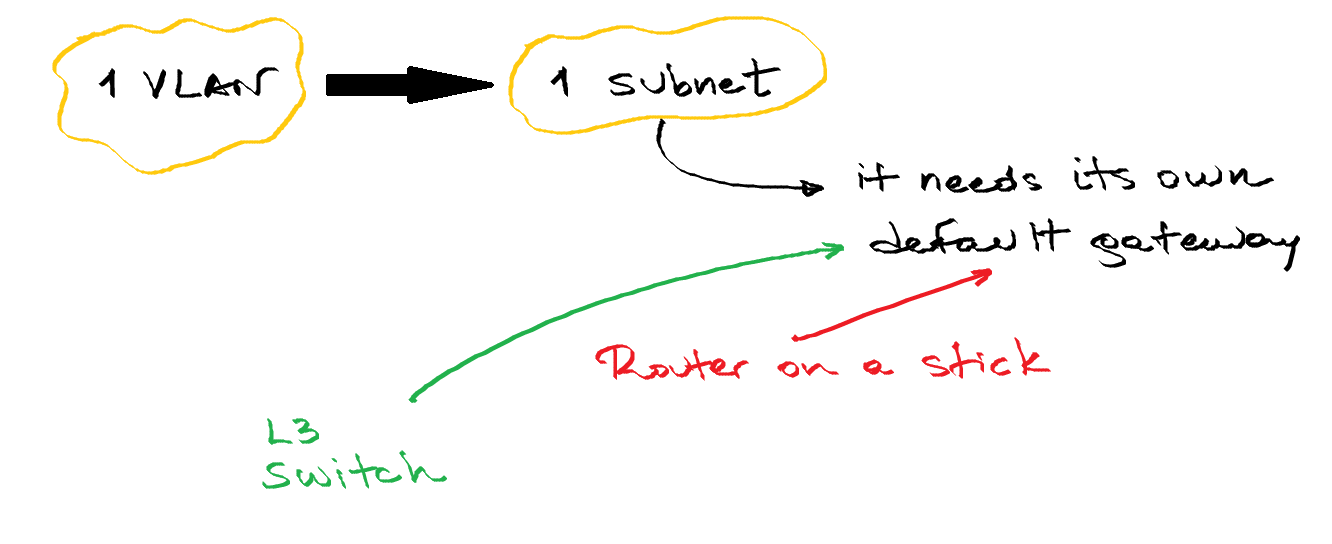 1 VLAN
1 subnet
it needs its own
default gateway
Router on a stick
L3
switch